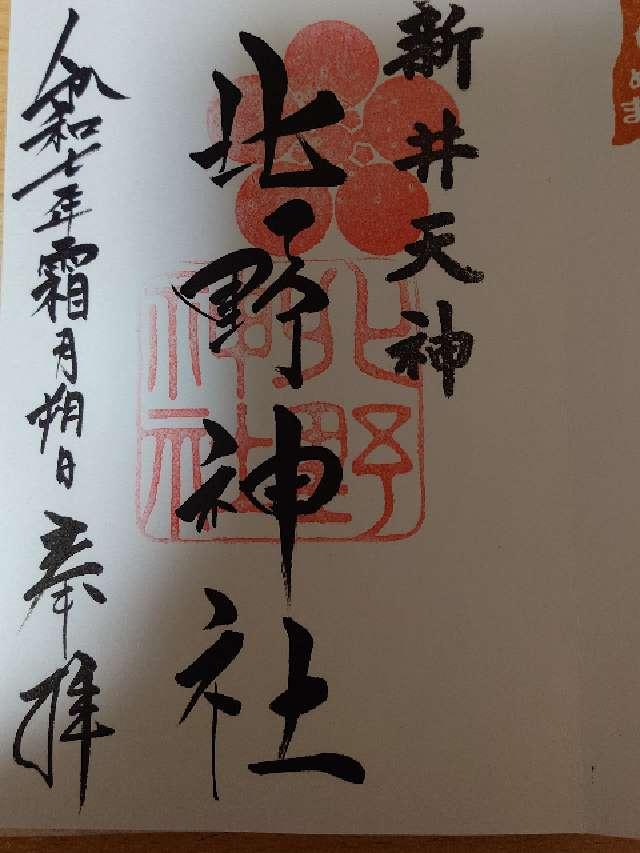 新井天神
北野神社
北野神社
令和七年霜月朔日 奉拝